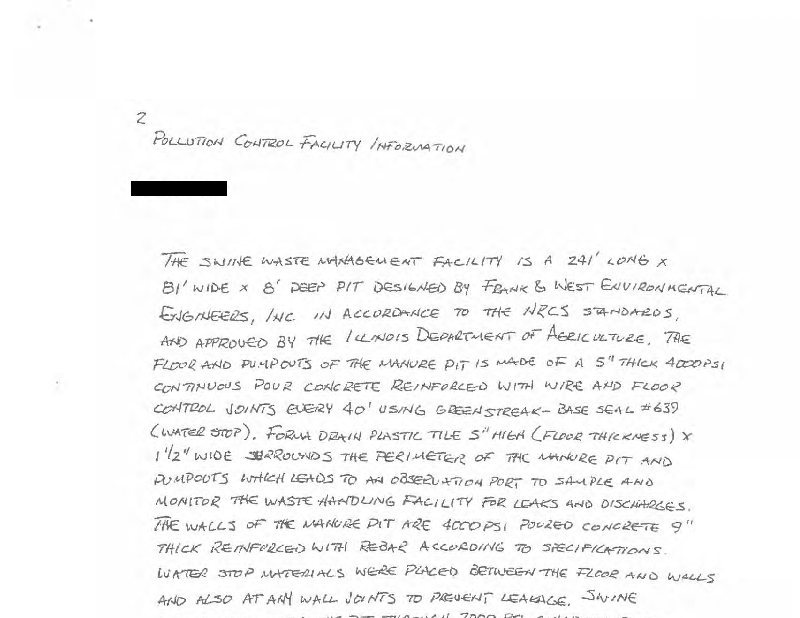 2
POLLUTION CONTROL FACILITY INFORMATION
THE SWINE WASTE MANAGEMENT FACILITY IS A 241' LONG X
81' WIDE X 8' DEEP PIT DESIGNED BY FRANK & WEST ENVIRONMENTAL
ENGINEERS, INC. IN ACCORDANCE TO THE NRCS STANDARDS,
AND APPROVED BY THE ILLINOIS DEPARTMENT OF AGRICULTURE. THE
FLOOR AND PUMPOUTS OF THE MANURE PIT IS MADE OF A 5" THICK 4000PSI
CONTINUOUS POUR CONCRETE REINFORCED WITH WIRE AND FLOOR
CONTROL JOINTS EVERY 40' USING GREENSTREAK- BASE SEAL #639
(WATER STOP). FORMA DRAIN PLASTIC TILE 5" HIGH (FLOOR THICKNESS) X
1 1/2" WIDE SURROUNDS THE PERIMETER OF THE MANURE PIT AND
PUMPOUTS WHICH LEADS TO AN OBSERVATION PORT TO SAMPLE AND
MONITOR THE WASTE HANDLING FACILITY FOR LEAKS AND DISCHARGES.
THE WALLS OF THE MANURE PIT ARE 4000PSI POURED CONCRETE 9"
THICK REINFORCED WITH REBAR ACCORDING TO SPECIFICATIONS.
WATER STOP MATERIALS WERE PLACED BETWEEN THE FLOOR AND WALLS
AND ALSO AT ANY WALL JOINTS TO PREVENT LEAKAGE. SWINE